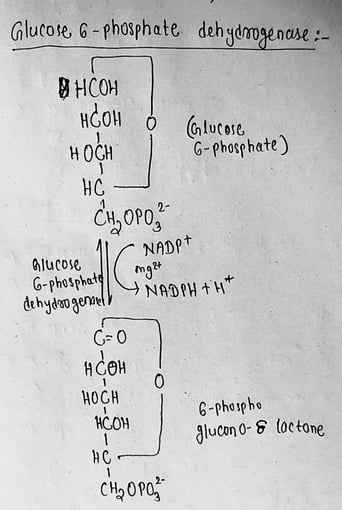 Glucose 6-phosphate dehydrogenase:-
HCOH
HCOH
O
(Glucose
6-phosphate)
HOCH
HC
CH₂OPO₃²⁻
Glucose
6-phosphate
dehydrogenase
NADP⁺
mg²⁺
NADPH + H⁺
C=O
HCOH
O
HOCH
HCOH
6-phospho
glucono-δ lactone
HC
CH₂OPO₃²⁻